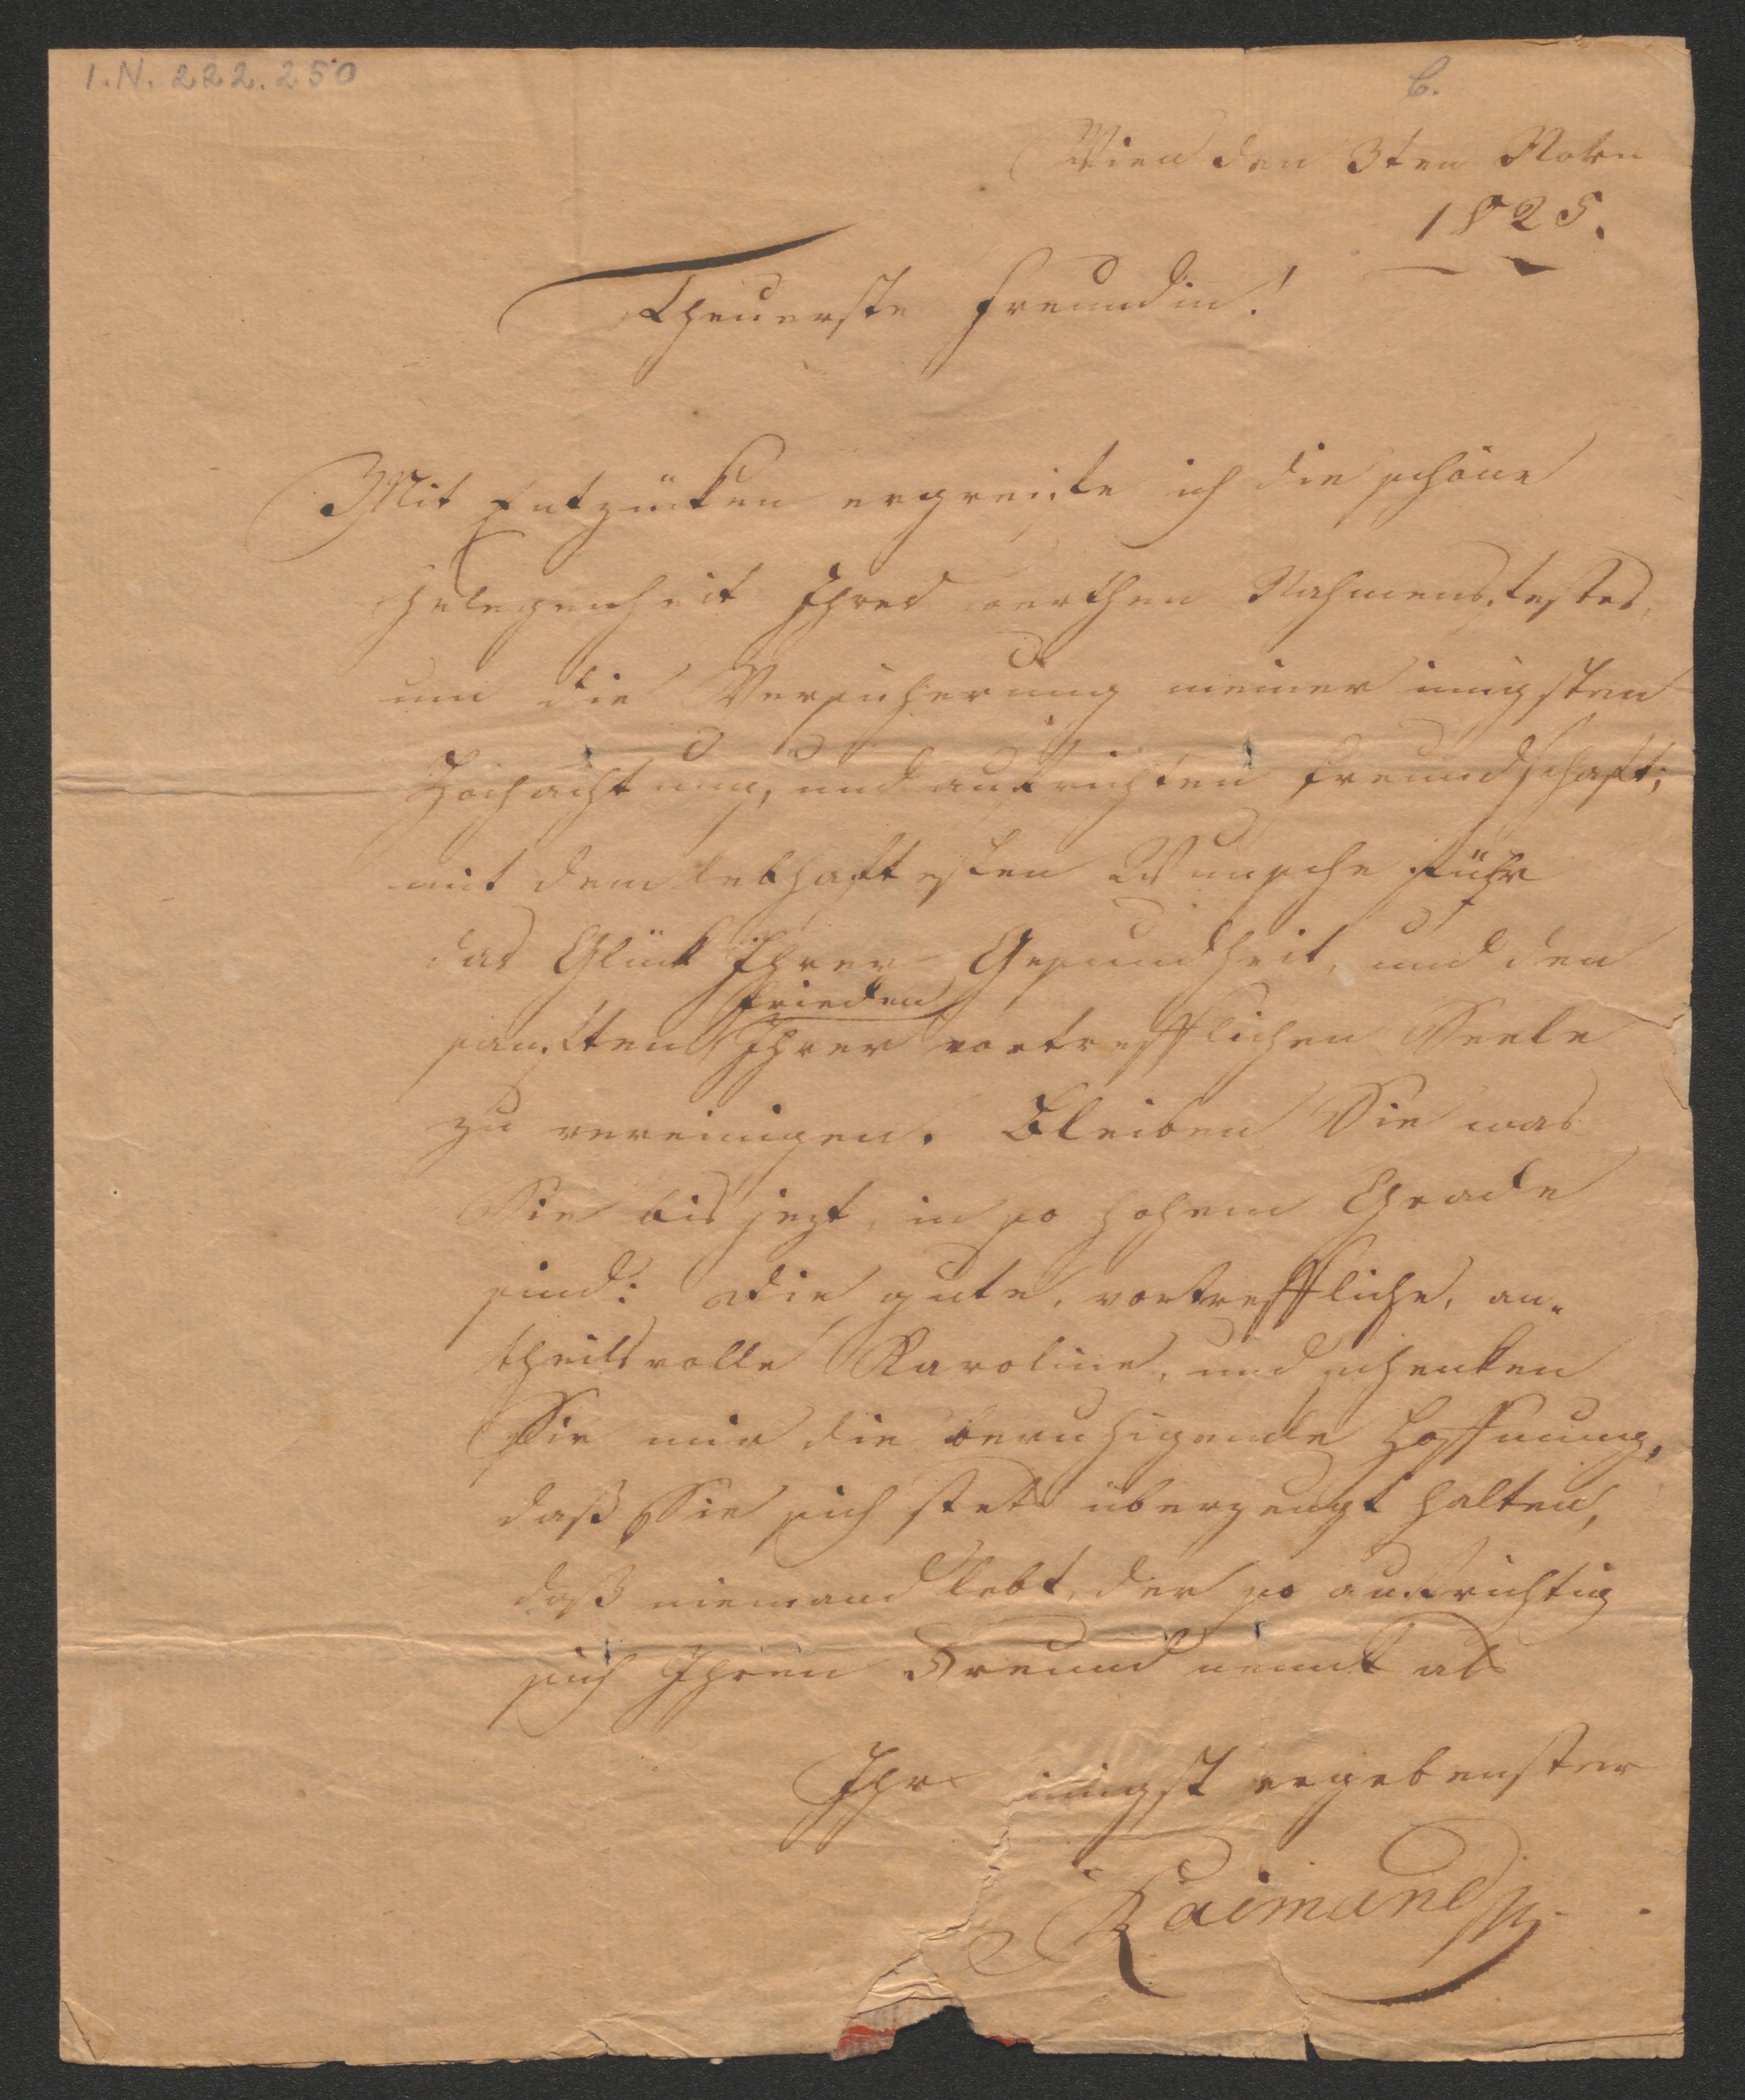 I.N. 222.250
6.
Wien den 3ten Novbr
1825.
Theuerste Freundin!
Mit Entzücken ergreiffe ich die schöne
Gelegenheit Ihres werthen Nahmensfestes,
um die Versicherung meiner innigsten
Hochachtung, und aufrichten Freundschaft;
mit dem lebhaftesten Wunsche führ
das Glück Ihrer Gesundheit, und den
Frieden
sanften Ihrer vortrefflichen Seele
zu vereinigen. Bleiben Sie was
Sie bis jezt, in so hohem Grade
sind: die gute, vortreffliche, an-
theilsvolle Karoline, und schenken
Sie mir die beruhigende Hoffnung,
daß Sie sich stets überzeugt halten,
daß niemand lebt, der so aufrichtig
sich Ihren Freund nennt als
Ihr innigst ergebenster
Raimund